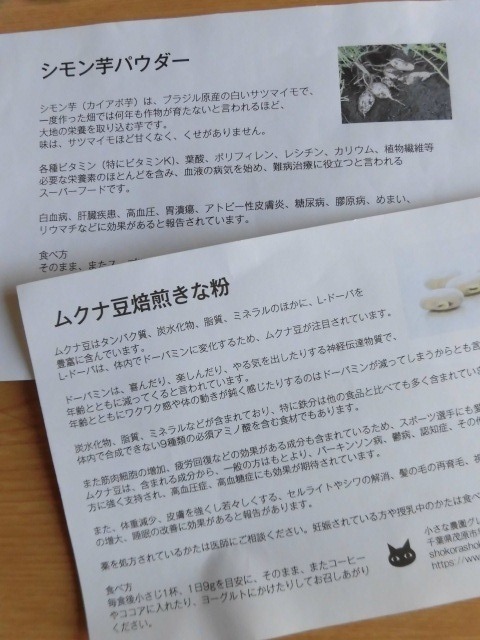 シモン芋パウダー
シモン芋（カイアポ芋）は、ブラジル原産の白いサツマイモで、
一度作った畑では何年も作物が育たないと言われるほど、
大地の栄養を取り込む芋です。
味は、サツマイモほど甘くなく、くせがありません。
各種ビタミン（特にビタミンK)、葉酸、ポリフィレン、レシチン、カリウム、植物繊維等
必要な栄養素のほとんどを含み、血液の病気を始め、難病治療に役立つと言われる
スーパーフードです。
白血病、肝臓疾患、高血圧、胃潰瘍、アトピー性皮膚炎、糖尿病、膠原病、めまい、
リウマチなどに効果があると報告されています。
食べ方
そのまま、またスープ
ムクナ豆焙煎きな粉
ムクナ豆はタンパク質、炭水化物、脂質、ミネラルのほかに、L-ドーパを
豊富に含んでいます。
L-ドーパは、体内でドーパミンに変化するため、ムクナ豆が注目されています。
ドーパミンは、喜んだり、楽しんだり、やる気を出したりする神経伝達物質で、
年齢とともに減ってくると言われています。
年齢とともにワクワク感や体の動きが鈍く感じたりするのはドーパミンが減ってしまうからとも言
炭水化物、脂質、ミネラルなどが含まれており、特に鉄分は他の食品と比べても多く含まれていま
体内で合成できない9種類の必須アミノ酸を含む食材でもあります。
また筋肉細胞の増加、疲労回復などの効果がある成分も含まれているため、スポーツ選手にも愛
ムクナ豆は、含まれる成分から、一般の方はもとより、パーキンソン病、鬱病、認知症、その他
方に強く支持され、高血圧症、高血糖症にも効果が期待されています。
また、体重減少、皮膚を強くし若々しくする、セルライトやシワの解消、髪の毛の再育毛、視
の増大、睡眠の改善に効果があると報告があります。
薬を処方されているかたは医師にご相談ください。妊娠されている方や授乳中のかたは食べ
食べ方
毎食後小さじ1杯、1日9gを目安に、そのまま、またコーヒー
やココアに入れたり、ヨーグルトにかけたりしてお召しあがり
ください。
小さな農園グレ
千葉県茂原市
shokorashok
https://ww